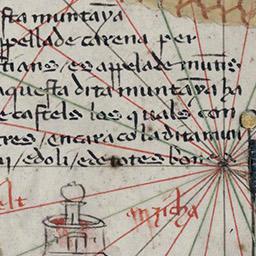 sta muntaya
appellade carena per
stians / es apelade munts
aquesta dita muntaya ha
e castels los quals con
res / encara co la dita mun
ui / e doli / e de totes bones
elt